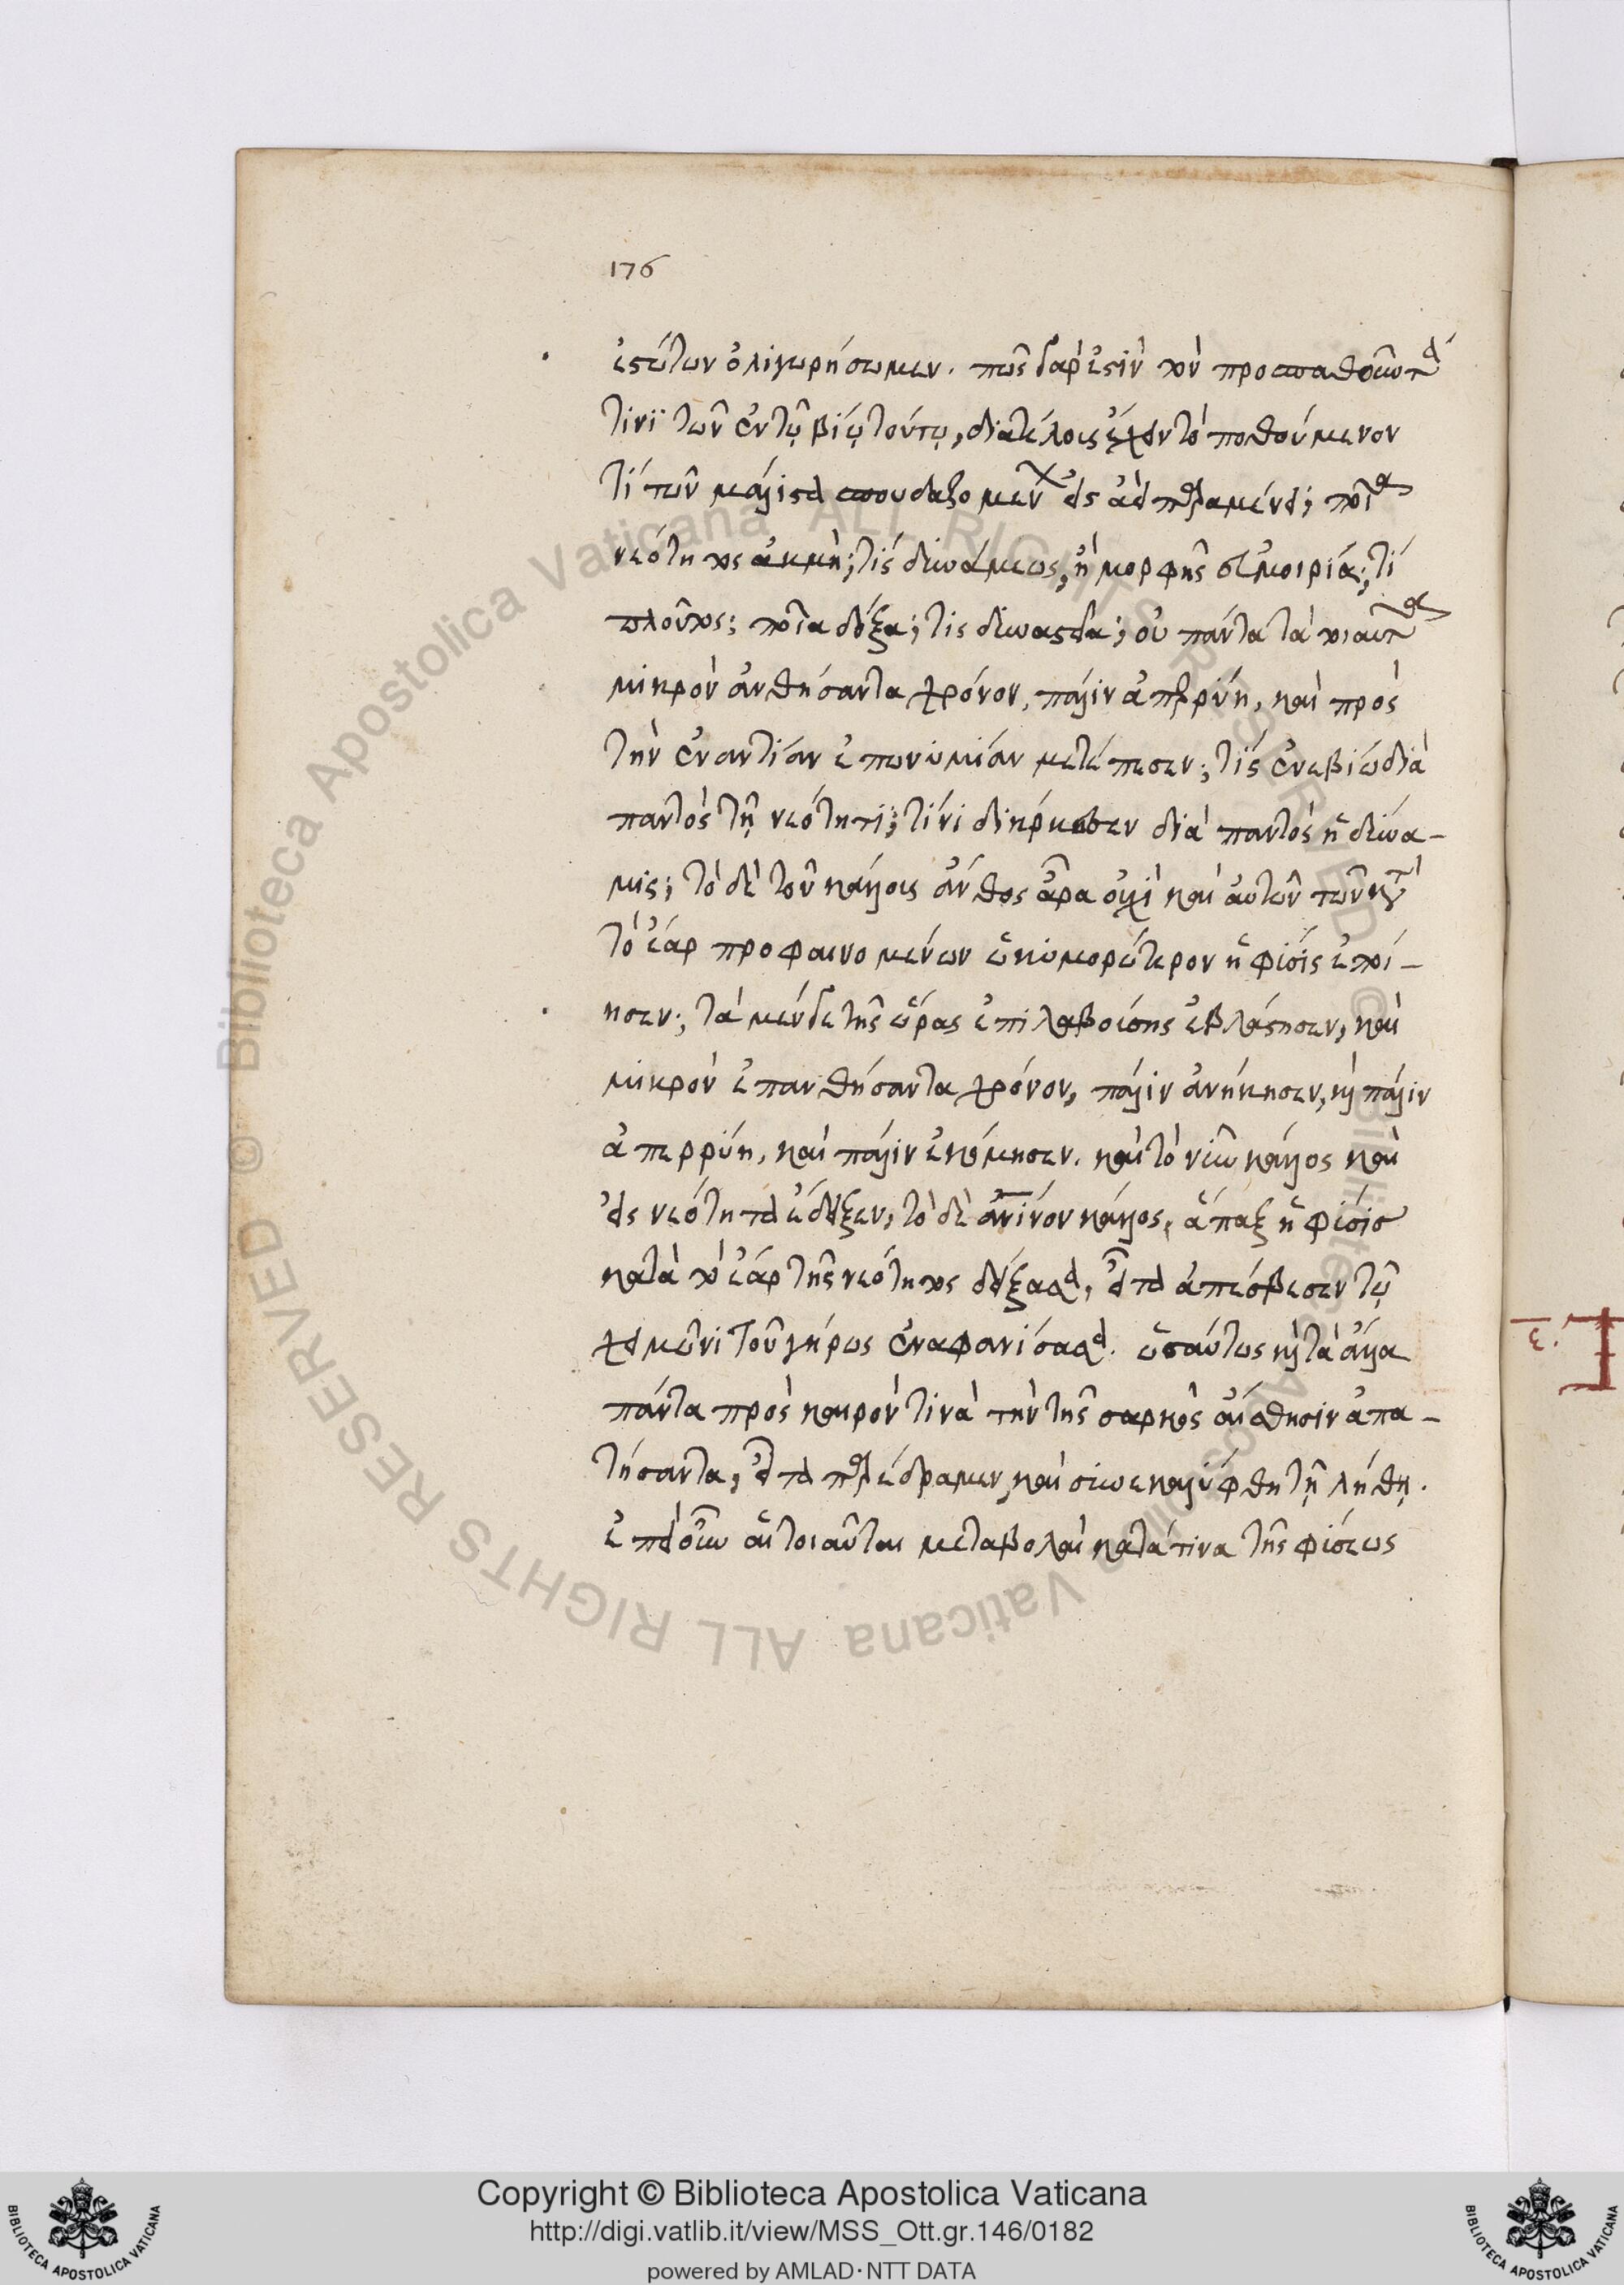 176
ἑστώτων ὀλιγωρήσωμεν. πῶς γὰρ ἐστὶν τὸν προσπαθοῦντα
τινὶ τῶν ἐν τῷ βίῳ τούτῳ, διὰ τέλους ἔχειν τὸ ποθούμενον
τί τῶν μάλιστα σπουδαζομένων εἰς ἀεὶ παραμένει; ποία
νεότητος ἀκμὴ; τίς δυνάμεως, ἢ μορφῆς εὐμοιρία; τί
πλοῦτος; ποῖα δόξα; τίς δυναστεία; οὐ πάντα τὰ τοιαῦτα
μικρὸν ἀνθήσαντα χρόνον, πάλιν ἀπερρύη, καὶ πρὸς
τὴν ἐναντίαν ἐπωνυμίαν μετέπεσεν; τίς ἐνεβίω διὰ
παντὸς τῇ νεότητι; τίνι διήρκεσεν διὰ παντὸς ἡ δύνα-
μις; τὸ δὲ τοῦ κάλλους ἄνθος ἆρα οὐχὶ καὶ αὐτῶν τῶν κατὰ
τὸ ἔαρ προφαινομένων ὠκυμορώτερον ἡ φύσις ἐποί-
ησεν; τὰ μέν γε τῆς ὥρας ἐπιλαβούσης ἐβλάστησεν, καὶ
μικρὸν ἐπανθήσαντα χρόνον, πάλιν ἀνήκησεν, καὶ πάλιν
ἀπερρύη, καὶ πάλιν ἐκόμησεν. καὶ τὸ νῦν κάλλος καὶ
εἰς νεότητα ἔδειξεν, τὸ δὲ ἀνινον κάλλος, ἅπαξ ἡ φύσις
κατὰ τὸ ἔαρ τῆς νεότητος δείξασα, εἶτα ἀπέσβεσεν τῷ
χειμῶνι τοῦ γήρως ἐναφανίσασα. ὡσαύτως καὶ τὰ ἄλλα
πάντα πρὸς καιρόν τινὰ τὴν τῆς σαρκὸς αἴσθησιν ἀπα-
τήσαντα, εἶτα παρέδραμεν, καὶ συνεκαλύφθη τῇ λήθῃ.
ἐπεὶ οὖν αἱ τοιαῦται μεταβολαὶ κατά τινα τῆς φύσεως
ε.
Copyright © Biblioteca Apostolica Vaticana
http://digi.vatlib.it/view/MSS_Ott.gr.146/0182
powered by AMLAD·NTT DATA